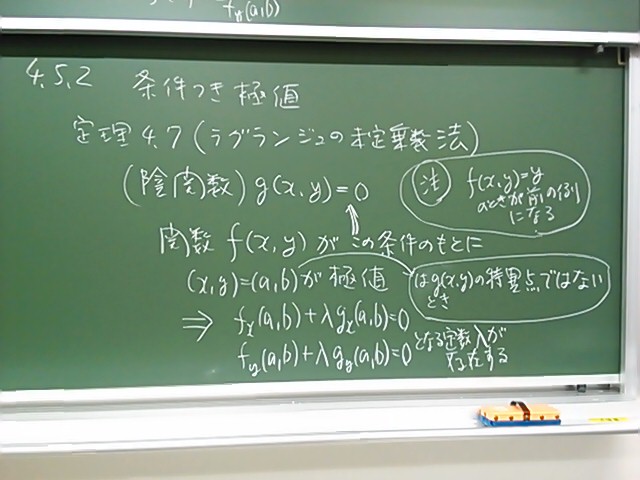 fy(a,b)
4.5.2 条件つき極値
定理4.7(ラグランジュの未定乗数法)
(陰関数) g(x,y)=0
注 f(x,y)=y
のときが前の例
になる
関数 f(x,y) がこの条件のもとに
(x,y)=(a,b)が極値
はg(x,y)の特異点ではない
とき
⇒ fx(a,b)+λgx(a,b)=0
fy(a,b)+λgy(a,b)=0
となる定数λが
存在する